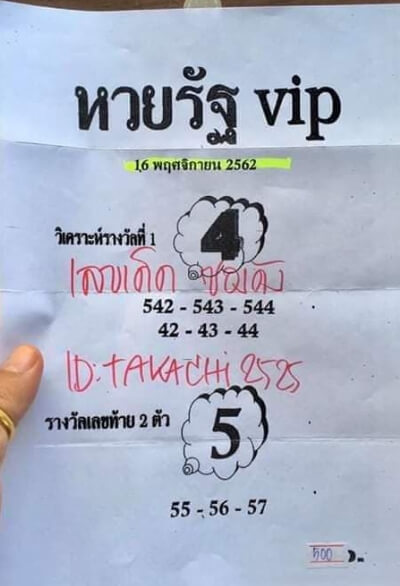 หวยรัฐ vip
16 พฤศจิกายน 2562
วิเคราะห์รางวัลที่ 1
4
เลขเด็ด
542 - 543 - 544
42 - 43 - 44
ID: TAKACHI 2525
รางวัลเลขท้าย 2 ตัว
5
55 - 56 - 57
500